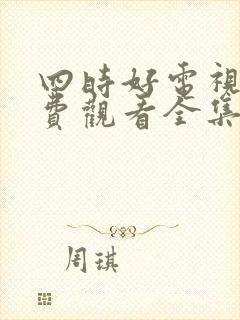 四時好電視
費觀看全集
周琪